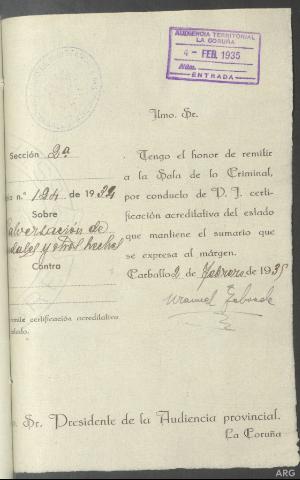 AUDIENCIA TERRITORIAL
LA CORUÑA
4 - FEB. 1935
Núm.
ENTRADA
Ilmo. Sr.
Sección 2ª
n.º 124 de 1932
Sobre
alversación de
y otros hechos
Contra
mite certificación acreditativa
Tengo el honor de remitir
a la Sala de lo Criminal,
por conducto de V. I. certi-
ficación acreditativa del estado
que mantiene el sumario que
se expresa al márgen.
Carballo 2 de Febrero de 1935
Manuel
Sr. Presidente de la Audiencia provincial.
La Coruña
ARG